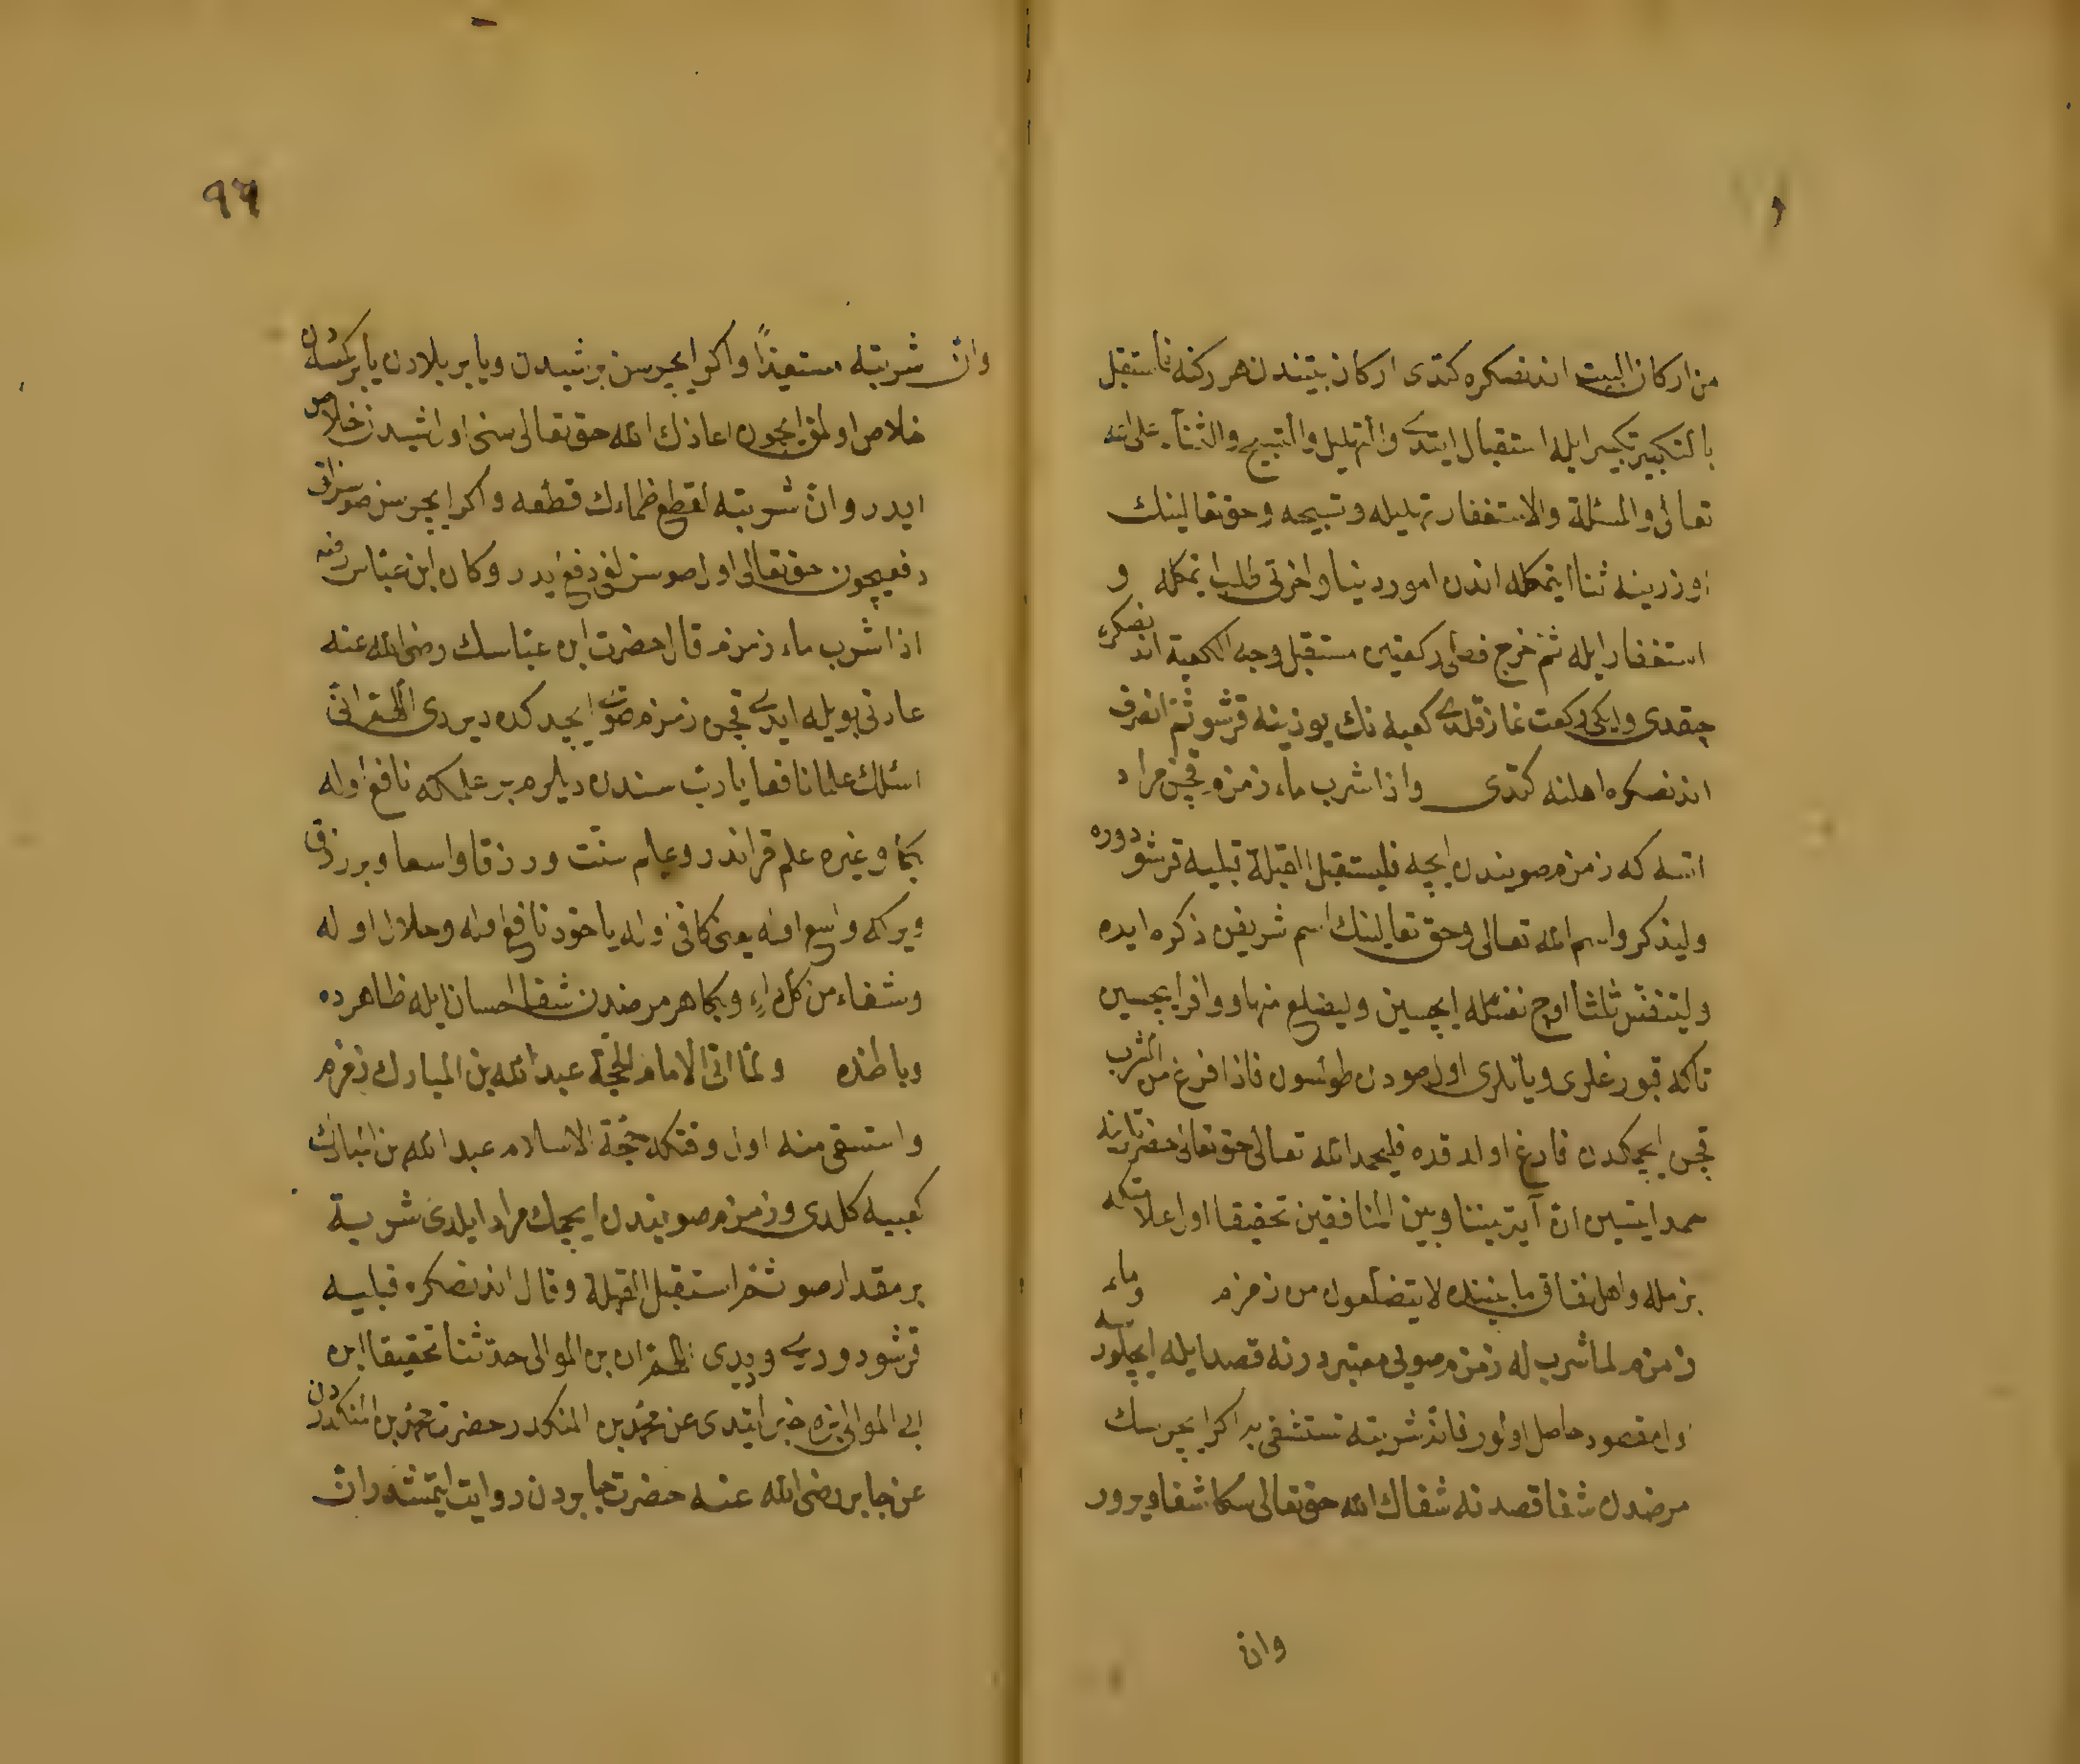 من اركان البيت اندنصكره كتدى اركان بيتندن هر ركنه فاستقبل
بالتكبير تكبير ايله استقبال ايتدى والتهليل والتسبيح والثناء على الله
تعالى والمسئلة والاستغفار تهليله وتسبيحه وحق تعالينك
اوزرينه ثنا ايتمكله اندن امور دنيا واخرتى طلب ايتمكله و
استغفار ايله ثم خرج فصلى ركعتين مستقبل وجه الكعبة اندنصكره
چقدى وايكى ركعت نماز قلدى كعبه نك يوزينه قرشو ثم انصرف
اندنصكره اهلنه كتدى واذا شرب ماء زمزم قچن مراد
اتسه كه زمزم صويندن ايچه فليستقبل القبلة قبليه قرشو دوره
وليذكروا اسم الله تعالى وحق تعالينك اسم شريفن ذكره ايده
وليتنفس ثلثا اوچ نفسله ايچسين وليضلع منها ووافر ايچسين
تاكه قبورغلرى ويانلرى اول صودن طولسون فاذا فرغ من الشرب
قچن ايچمكدن فارغ اولدقده فليحمد الله تعالى حق تعالى حضرتلرينه
حمد ايتسين ان آية بيننا وبين المنافقين تحقيقا اول علامتكه
بزمله واهل نفاق مابيننده لا يتضلعون من زمزم وماء
زمزم لما شرب له زمزم صويى معتبر در نه قصد ايله ايچلورسه
اول مقصود حاصل اولور فان شربته تستشفى به اكر ايچرسك
مرضدن شفا قصدنه شفاك الله حق تعالى سكا شفا ويرور
وان
٩٦
وان شربته مستعيذا واكر ايچرسن بر شيدن ويا بر بلادن يا بر كمسه دن
خلاص اولمق ايچون اعاذك الله حق تعالى سنى اول شيدن خلاص
ايدر وان شربته لقطع ظماءك قطعه واكر ايچرسن صوسزلق
دفعيچون حق تعالى اول صوسزلغى دفع ايدر وكان ابن عباس رضه
اذا شرب ماء زمزم قال حضرت ابن عباسك رضى الله عنه
عادتى بويله ايدى قچن زمزم صويى ايچدكده ديردى اللهم انى
اسئلك علما نافعا يا رب سندن ديلرم بر علمكه نافع اوله
بكا وغيره علم قراندر وعلم سنت ورزقا واسعا وبر رزق
ويركه واسع اوله يعنى كافى اوله ياخود نافع اوله وحلال اوله
وشفاء من كل داء وبكا هر مرضدن شفا احسان ايله ظاهرده
وباطنده ولما اتى الامام الحجة عبد الله بن المبارك زمزم
واستسقى منه اول وقتكه حجة الاسلام عبد الله بن المبارك
كعبيه كلدى وزمزم صويندن ايچمك مراد ايلدى شربة
بر مقدار صو ثم استقبل القبلة وقال اندنصكره قبليه
قرشو دوردى وديدى اللهم ان بن الموالى حدثنا تحقيقا ابن
ابى الموالى بزه خبر ايتدى عن محمد بن المنكدر حضرت محمد بن المنكدردن
عن جابر رضى الله عنه حضرت جابردن روايت ايتمشدر ان